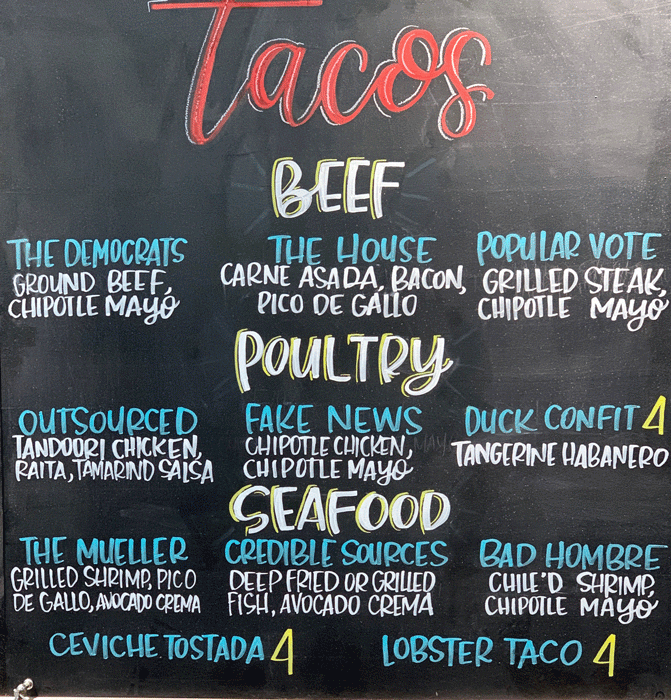 Tacos
BEEF
THE DEMOCRATS
GROUND BEEF,
CHIPOTLE MAYO
THE HOUSE
CARNE ASADA, BACON,
PICO DE GALLO
POPULAR VOTE
GRILLED STEAK,
CHIPOTLE MAYO
POULTRY
OUTSOURCED
TANDOORI CHICKEN,
RAITA, TAMARIND SALSA
FAKE NEWS
CHIPOTLE CHICKEN,
CHIPOTLE MAYO
DUCK CONFIT 4
TANGERINE HABANERO
SEAFOOD
THE MUELLER
GRILLED SHRIMP, PICO
DE GALLO, AVOCADO CREMA
CREDIBLE SOURCES
DEEP FRIED OR GRILLED
FISH, AVOCADO CREMA
BAD HOMBRE
CHILE'D SHRIMP,
CHIPOTLE MAYO
CEVICHE TOSTADA 4
LOBSTER TACO 4